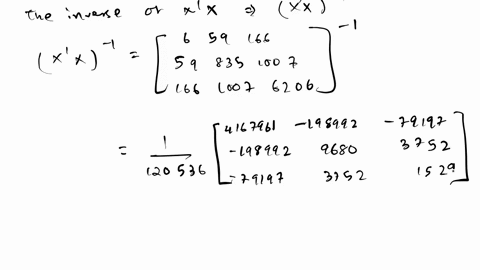 the inverse of x'x ⇒ (x'x)
(x'x)⁻¹ = [ 6 59 166 ]⁻¹
59 835 1007
166 1007 6206
= 1/120536 [ 4167961 -198992 -79197
-198992 9680 3752
-79197 3752 1529 ]